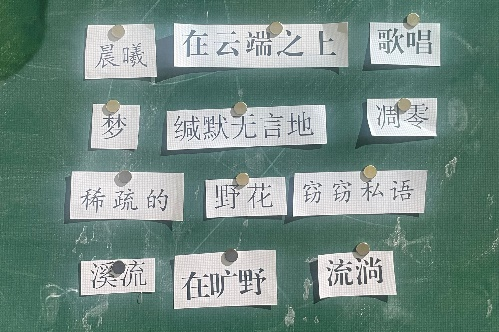 晨曦 在云端之上 歌唱
梦 缄默无言地 凋零
稀疏的 野花 窃窃私语
溪流 在旷野 流淌